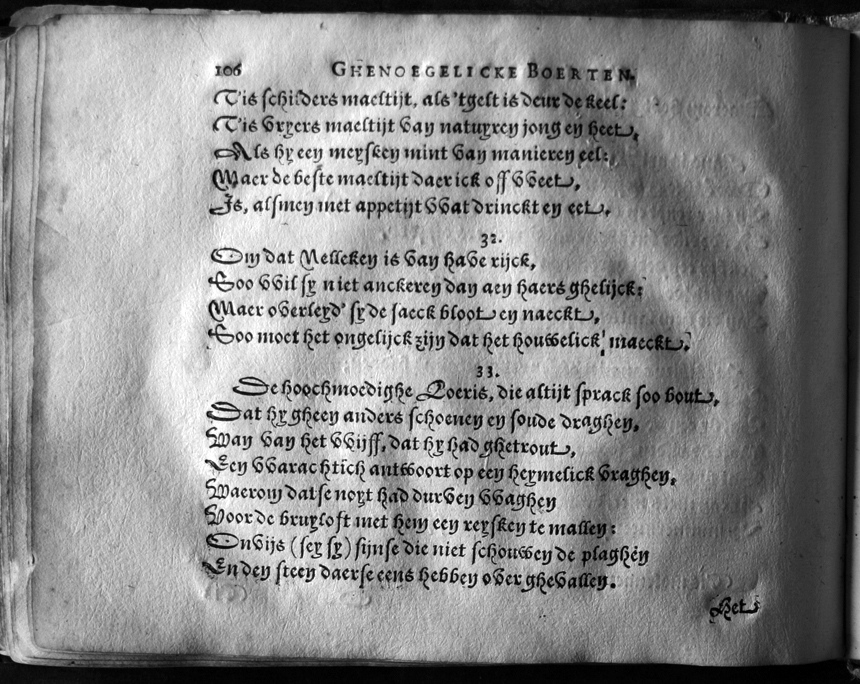 106 GHENOEGELICKE BOERTEN.
T'is schilders maeltijt, als 'tgelt is deur de keel:
T'is vryers maeltijt van natuyren jong en heet,
Als hy een meysken mint van manieren eel:
Maer de beste maeltijt daer ick off vveet,
Is, alsmen met appetijt vvat drinckt en eet.
32.
Om dat Nelleken is van have rijck,
Soo vvil sy niet anckeren dan aen haers ghelijck:
Maer overleyd' sy de saeck bloot en naeckt,
Soo moet het ongelijck zijn dat het houwelick maeckt.
33.
De hoochmoedighe Loeris, die altijt sprack soo bout,
Dat hy gheen anders schoenen en soude draghen,
Wan van het vvijff, dat hy had ghetrout,
Een vvarachtich antwoort op een heymelick vraghen,
Waerom datse noyt had durven vvaghen
Voor de bruyloft met hem een reysken te mallen:
Onvijs (sey sy) sijnse die niet schouwen de plaghen
En den steen daerse eens hebben over ghevallen.
Het